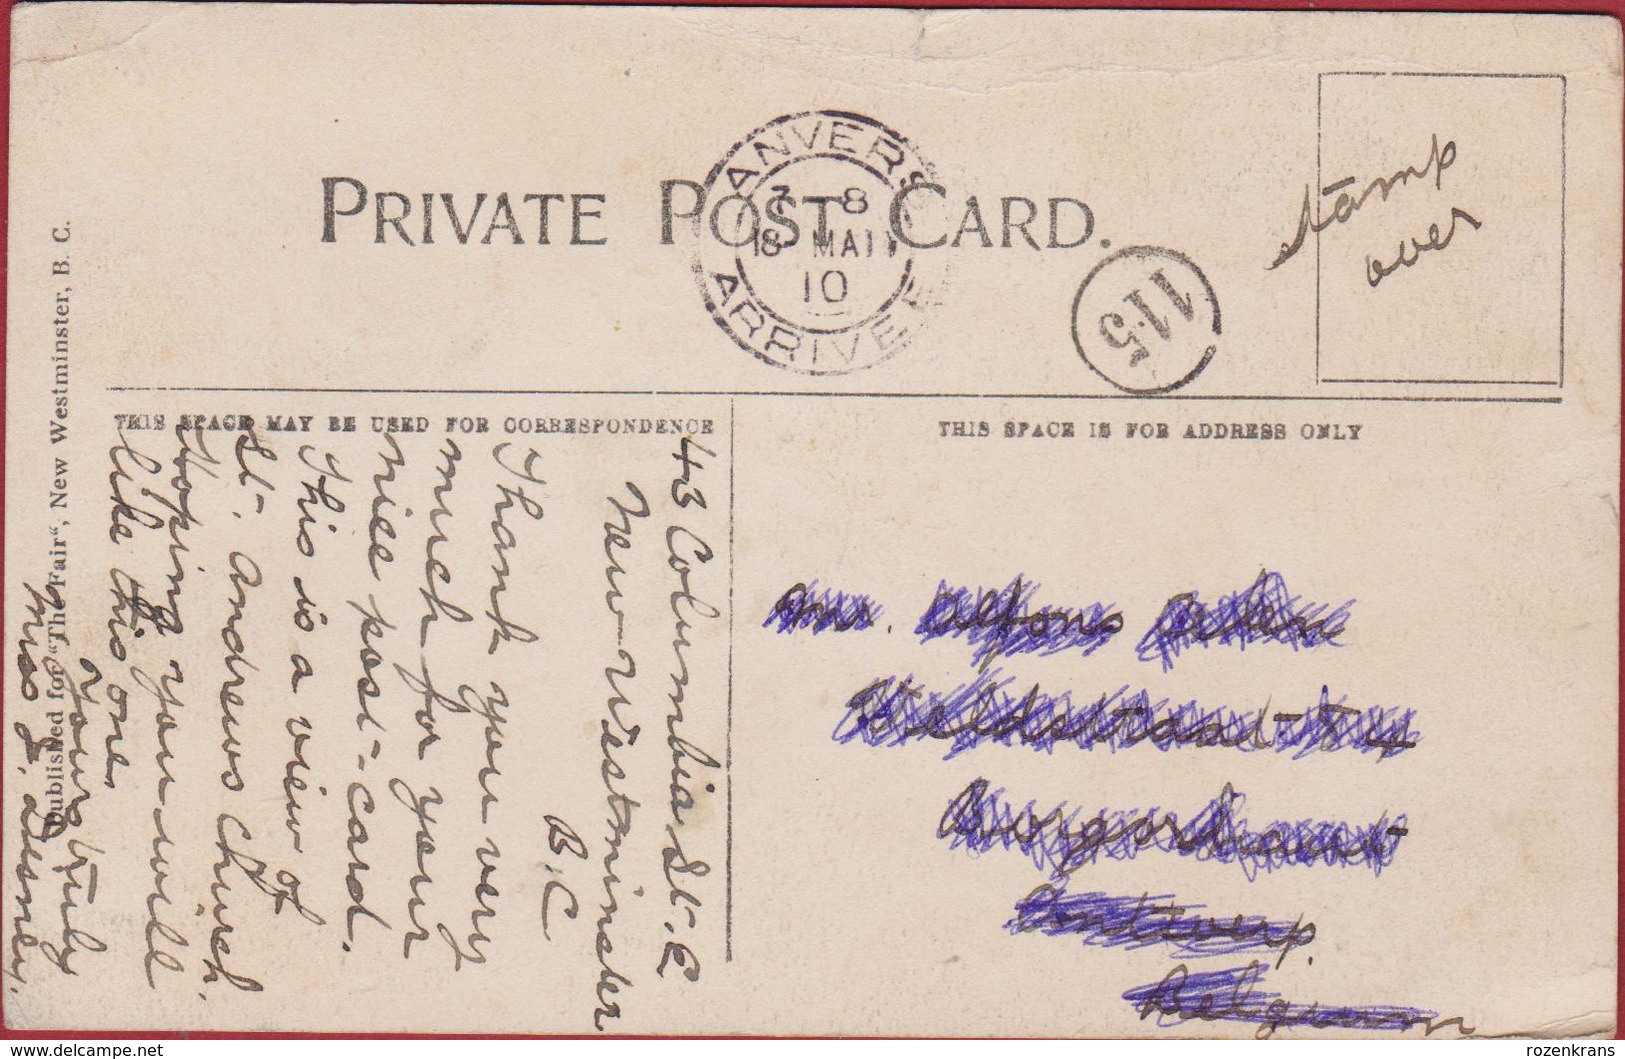 PRIVATE POST CARD.
ANVERS
7 - 8
18 MAI
10
ARRIVEE
115
Stamp
over
Published for "The Fair", New Westminster, B. C.
THIS SPACE MAY BE USED FOR CORRESPONDENCE
THIS SPACE IS FOR ADDRESS ONLY
43 Columbia St. E
New Westminster
B.C
Thank you very
much for your
nice post-card.
This is a view of
St. Andrews Church.
Hoping you will
like this one.
yours truly
Miss J.
Mr. Alfons
Borgerhout
Antwerp.
Belgium
www.delcampe.net
rozenkrans